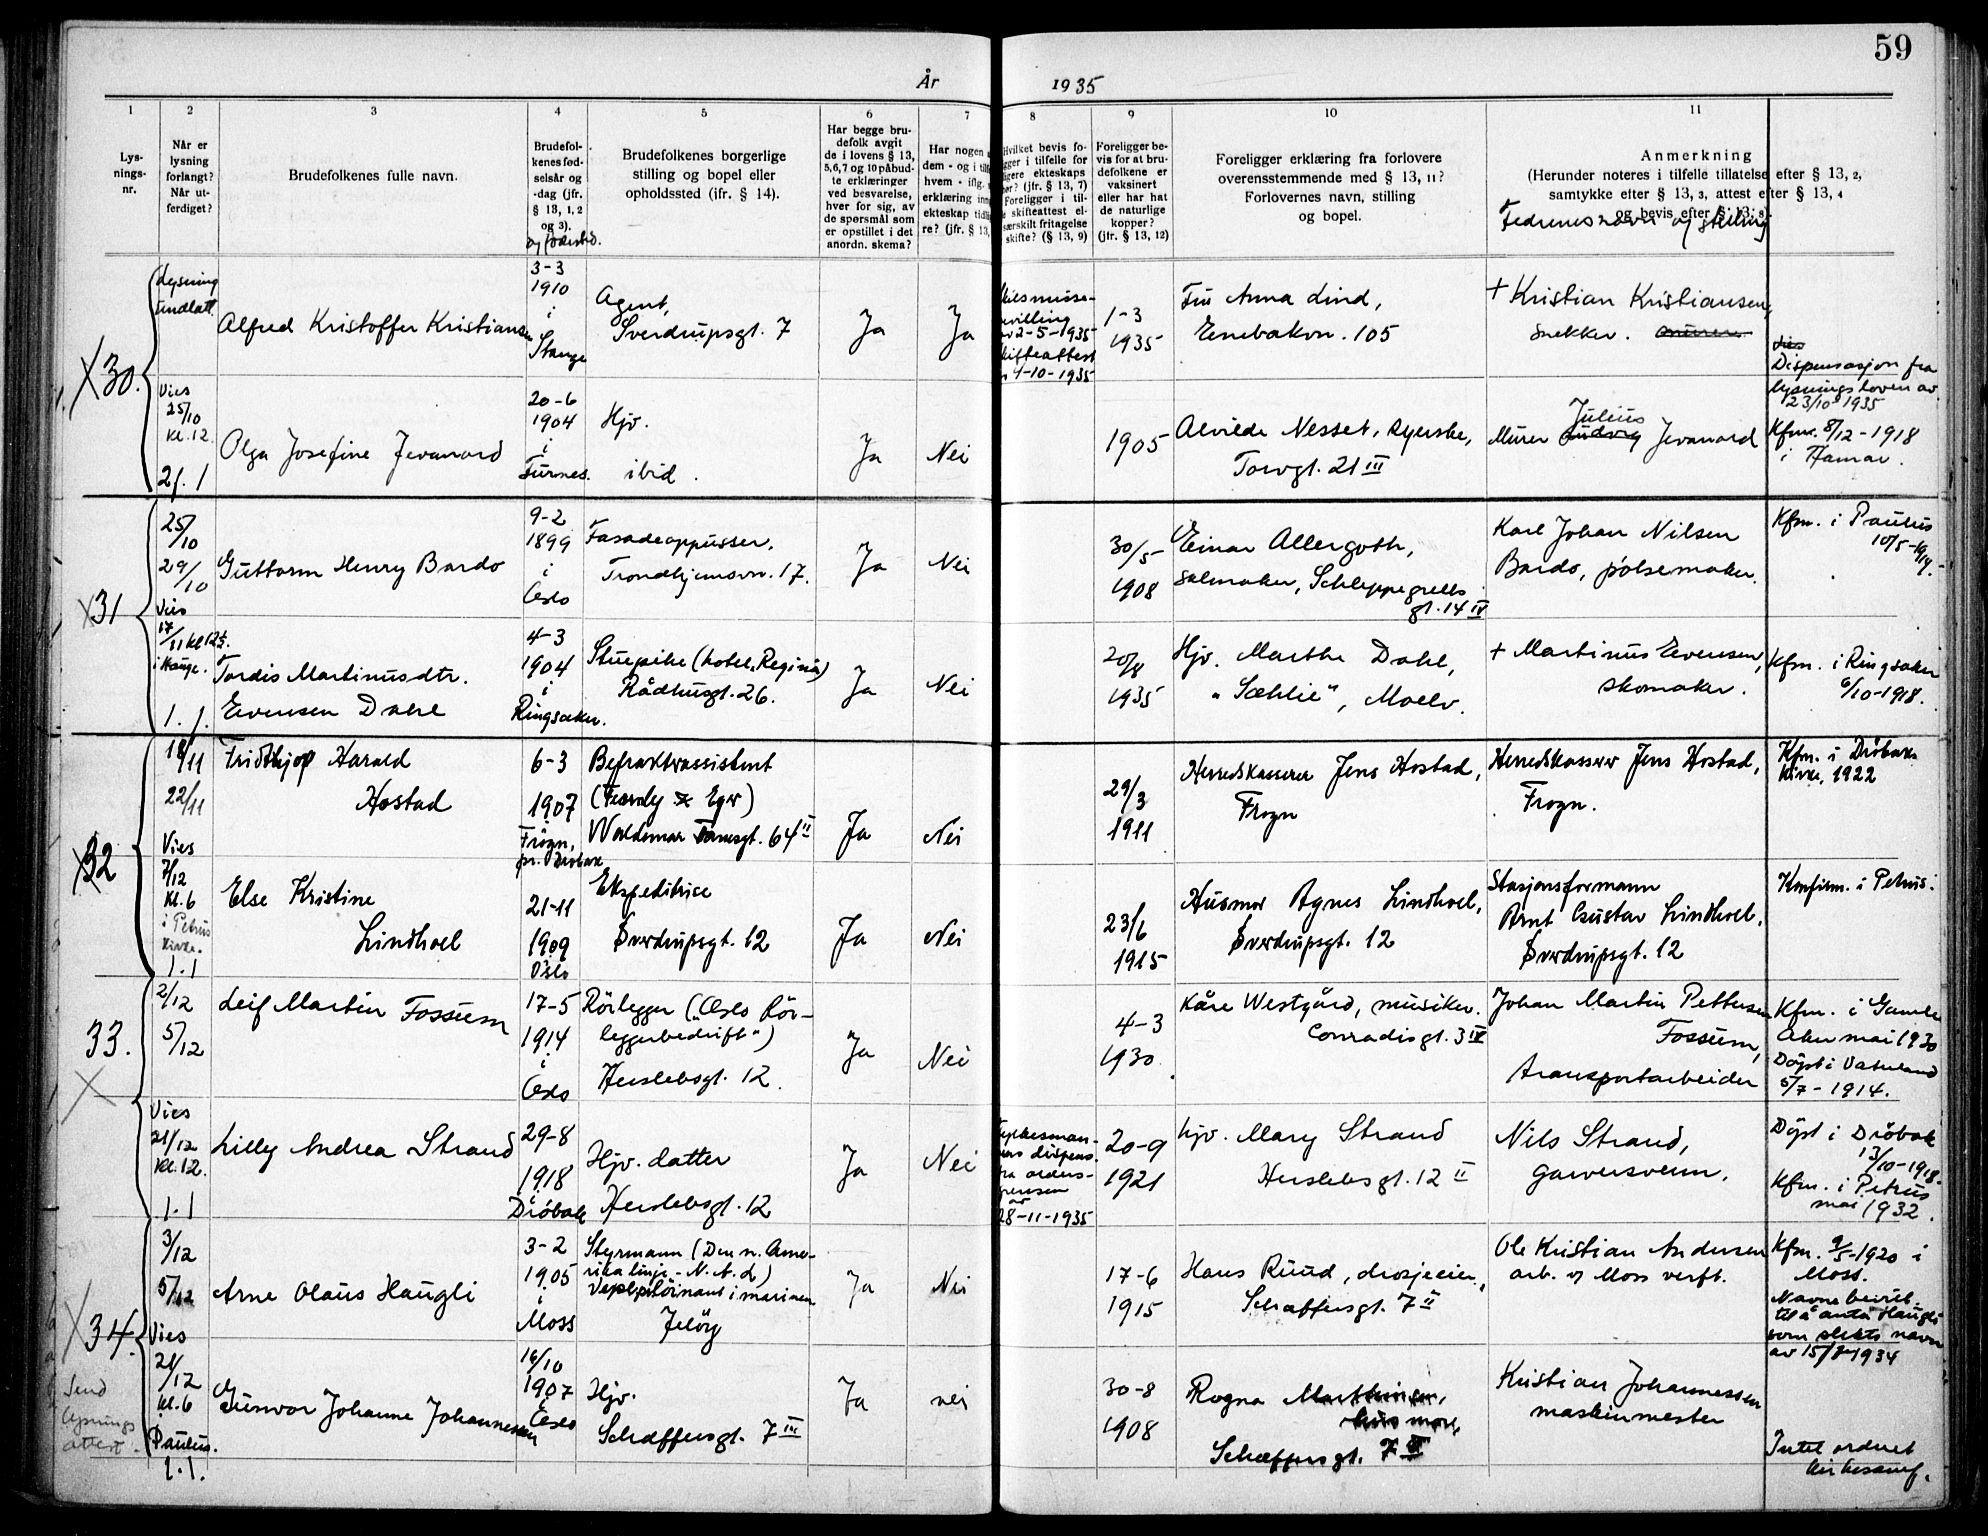 59
År 1935
1 2 3 4 5 6 7 8 9 10 11
Lys-
nings-
nr.
Når er
lysning
forlangt?
Når ut-
ferdiget?
Brudefolkenes fulle navn.
Brudefol-
kenes fød-
selsår og
-dag (jfr.
§ 13, 1, 2
og 3).
og fødested.
Brudefolkenes borgerlige
stilling og bopel eller
opholdssted (jfr. § 14).
Har begge bru-
defolk avgit
de i lovens § 13,
5,6,7 og 10 påbud-
te erklæringer
ved besvarelse,
hver for sig, av
de spørsmål som
er opstillet i det
anordn. skema?
Har nogen
dem - og i til
hvem - iflg.
erklæring inn
ekteskap tidl
re? (jfr. § 13,
Hvilket bevis fo-
gger i tilfelle for
igere ekteskaps
ør? (jfr. § 13, 7)
Foreligger i til-
e skifteattest el-
særskilt fritagelse
skifte? (§ 13, 9)
Foreligger be-
vis for at bru-
defolkene er
vaksinert
eller har hat
de naturlige
kopper?
(jfr. § 13, 12)
Foreligger erklæring fra forlovere
overensstemmende med § 13, 11?
Forlovernes navn, stilling
og bopel.
Anmerkning
(Herunder noteres i tilfelle tillatelse efter § 13, 2,
samtykke efter § 13, 3, attest efter § 13, 4
og bevis efter § 13, 8).
Fedrenes navn og stilling
X 30.
Lysning
undlatt
Alfred Kristoffer Kristiansen
3-3
1910
i
Stange
Agent,
Sverdrupsgt. 7
Ja
Ja
kilsmisse-
bevilling
av 2-5-1935
skifteattest
4-10-1935
1-3
1935
Fru Anna Lind,
Enebakvn. 105
+ Kristian Kristiansen,
snekker.
Dispensasjon fra
lysningsloven av
23/10 1935
Vies
25/10
kl. 12.
21.1
Olga Josefine Jevanord
20-6
1904
i
Furnes.
Hjv.
ibid.
Ja
Nei
1905
Alvilde Nesset, syerske,
Torvgt. 21 III
Julius
Murer Ludvig Jevanord
Kfm. 8/12-1918
i Hamar.
X 31
25/10
29/10
Guttorm Henry Bardo
9-2
1899
i
Oslo
Fasadeoppusser,
Trondhjemsvn. 17.
Ja
Nei
30/5-
1908
Einar Allergoth,
salmaker, Schleppegrells
gt. 14 IV
Karl Johan Nilsen
Bardo, pølsemaker.
Kfm. i Paulus
10/5-1914.
Vies
17/11 kl 12½.
i Hauge.
1.1.
Tordis Martinusdtr.
Evensen Dahl
4-3
1904
i
Ringsaker.
Stuepike (hotel "Regina")
Rådhusgt. 26.
Ja
Nei
20/8
1935
Hjv. Marthe Dahl,
"Sæhlie", Moelv.
+ Martinus Evensen,
skomaker.
Kfm. i Ringsaker
6/10-1918.
X 32
18/11
22/11
Fridthjof Harald
Hostad
6-3
1907
Frogn,
pr. Drøbak
Befraktrassistent
(Fearnley & Eger)
Waldemar Tranesgt. 64 II
Ja
Nei
29/3
1911
Herredskasserer Jens Hostad,
Frogn
Herredskasserer Jens Hostad,
Frogn.
Kfm. i Drøbak
kirke, 1922
Vies
7/12
Kl. 6
i Petrus
kirke.
1.1
Else Kristine
Lindhoel
21-11
1909
Oslo
Ekspeditrice
Sverdrupsgt. 12
Ja
Nei
23/6
1915
Husmor Agnes Lindhoel,
Sverdrupsgt. 12
Stasjonsformann
Arnt Gustav Lindhoel,
Sverdrupsgt. 12
Konfirm. i Petrus.
33.
X
2/12
5/12
Leif Martin Fossum
17-5
1914
i
Oslo
Rørlegger ("Oslo Rør-
leggerbedrift")
Herslebsgt. 12
Ja
Nei
4-3
1930
Kåre Westgård, musiker.
Conradisgt. 3 IV
Johan Martin Pettersen
Fossum,
transportarbeider
Kfm. i Gamle
Aker mai 1930
Døpt i Vaterland
5/7-1914.
Vies
21/12
kl. 12.
1.1
Lilly Andrea Strand
29-8
1918
i
Drøbak
Hjv. datter
Herslebsgt. 12
Ja
Nei
fylkesman-
nens dispens.
fra alders-
grensen
av
28-11-1935
20-9
1921
Hjv. Mary Strand
Herslebsgt. 12 II
Nils Strand,
garversvenn.
Døpt i Drøbak
13/10-1918.
Kfm. i Petrus
mai 1932.
X 34.
3/12
5/12
Arne Olaus Haugli
3-2
1905
i
Moss
Styrmann (Den n. Ame-
rika linje - N.A.L)
Vepl. løitnant i marinen
Jeløy
Ja
Nei
17-6
1915
Hans Ruud, drosjeeier,
Schæffersgt. 7 II
Ole Kristian Andersen
arb. v/ Moss verft.
Kfm. 9/5-1920 i
Moss.
Navnebevil.
til å anta Haugli
som slektsnavn
av 15/ 1934
Send
lysnings
attest.
Vies
21/12
kl. 6
Paulus.
1.1.
Gunvor Johanne Johannessen
16/10
1907
Oslo
Hjv.
Schæffersgt. 7 III
Ja
nei
30-8
1908
Rogna Marthinsen,
husmor,
Schæffersgt. 7 II
Kristian Johannessen
maskinmester
Intet ordnet
kirkesamf.